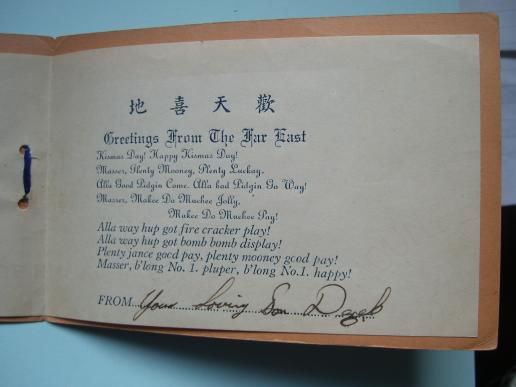 地喜天歡
Greetings From The Far East
Kismas Day! Happy Kismas Day!
Masser, Plenty Mooney, Plenty Luckay.
Alla Good Pidgin Come. Alla bad Pidgin Go Way!
Masser, Makee Do Muchee Jolly,
Makee Do Muchee Pay!
Alla way hup got fire cracker play!
Alla way hup got bomb bomb display!
Plenty jance gocd pay, plenty mooney gcod pay!
Masser, b'long No. 1. pluper, b'long No.1. happy!
FROM Your Loving Son